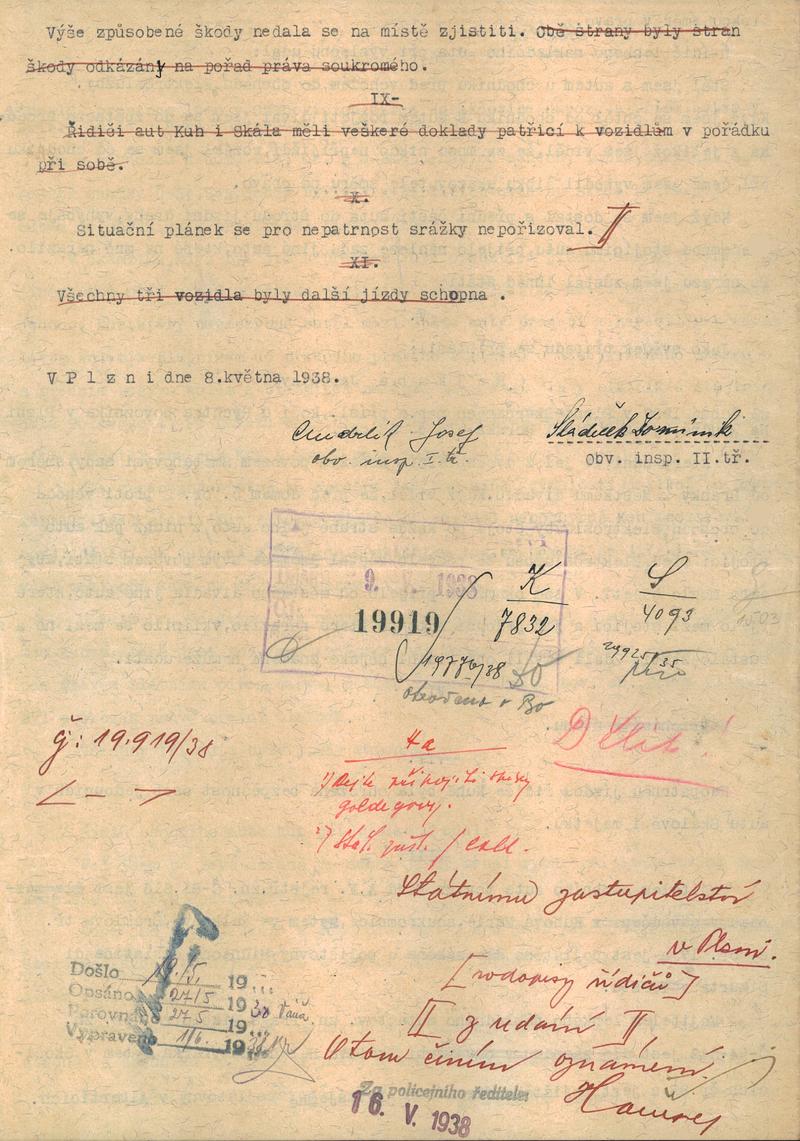 Výše způsobené škody nedala se na místě zjistiti. Obě strany byly stran
škody odkázány na pořad práva soukromého.
IX-
Řidiči aut Kuh i Skála měli veškeré doklady patřicí k vozidlům v pořádku
při sobě.
X.
Situační plánek se pro nepatrnost srážky nepořizoval.
XI.
Všechny tři vozidla byly další jízdy schopna .
V P l z n i dne 8.května 1938.
Josef
obv. insp. I. tř.
Sládeček Dominik
Obv. insp. II.tř.
9. V. 1938
K
S
19919
7832
4093
19776/38
č: 19.919/38
4a
1)
2)
Státnímu zastupitelství
v Plzni.
[rodopisy řidičů]
z udání
O tom činím oznámení.
Došlo 19/5. 19...
Opsáno 27/5 19 38
Porovnáno 27.5 19...
Vypraveno 1/6. 19 38
Za policejního ředitele:
16. V. 1938